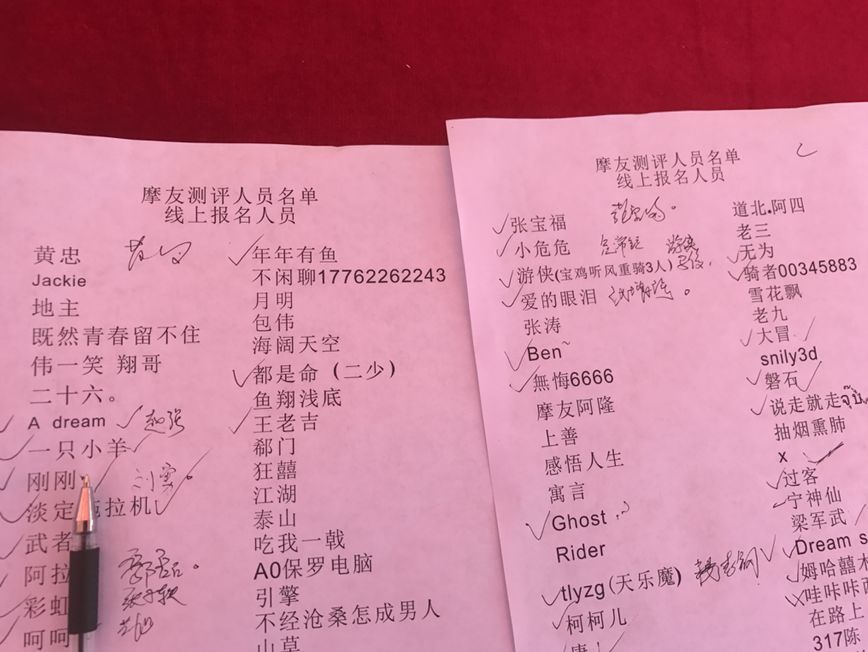 摩友测评人员名单
线上报名人员
黄忠
Jackie
地主
既然青春留不住
伟一笑 翔哥
二十六。
A dream
一只小羊
刚刚
淡定拖拉机
武者
阿拉
彩虹
呵呵
年年有鱼
不闲聊17762262243
月明
包伟
海阔天空
都是命（二少）
鱼翔浅底
王老吉
郗门
狂囍
江湖
泰山
吃我一戟
A0保罗电脑
引擎
不经沧桑怎成男人
山草
摩友测评人员名单
线上报名人员
张宝福
小危危
游侠(宝鸡听风重骑3人)
爱的眼泪
张涛
Ben~
無悔6666
摩友阿隆
上善
感悟人生
寓言
Ghost
Rider
tlyzg(天乐魔)
柯柯儿
道北.阿四
老三
无为
骑者00345883
雪花飘
老九
大冒
snily3d
磐石
说走就走
抽烟熏肺
x
过客
宁神仙
梁军武
Dream s
姆哈囍木
哇咔咔
在路上
317陈